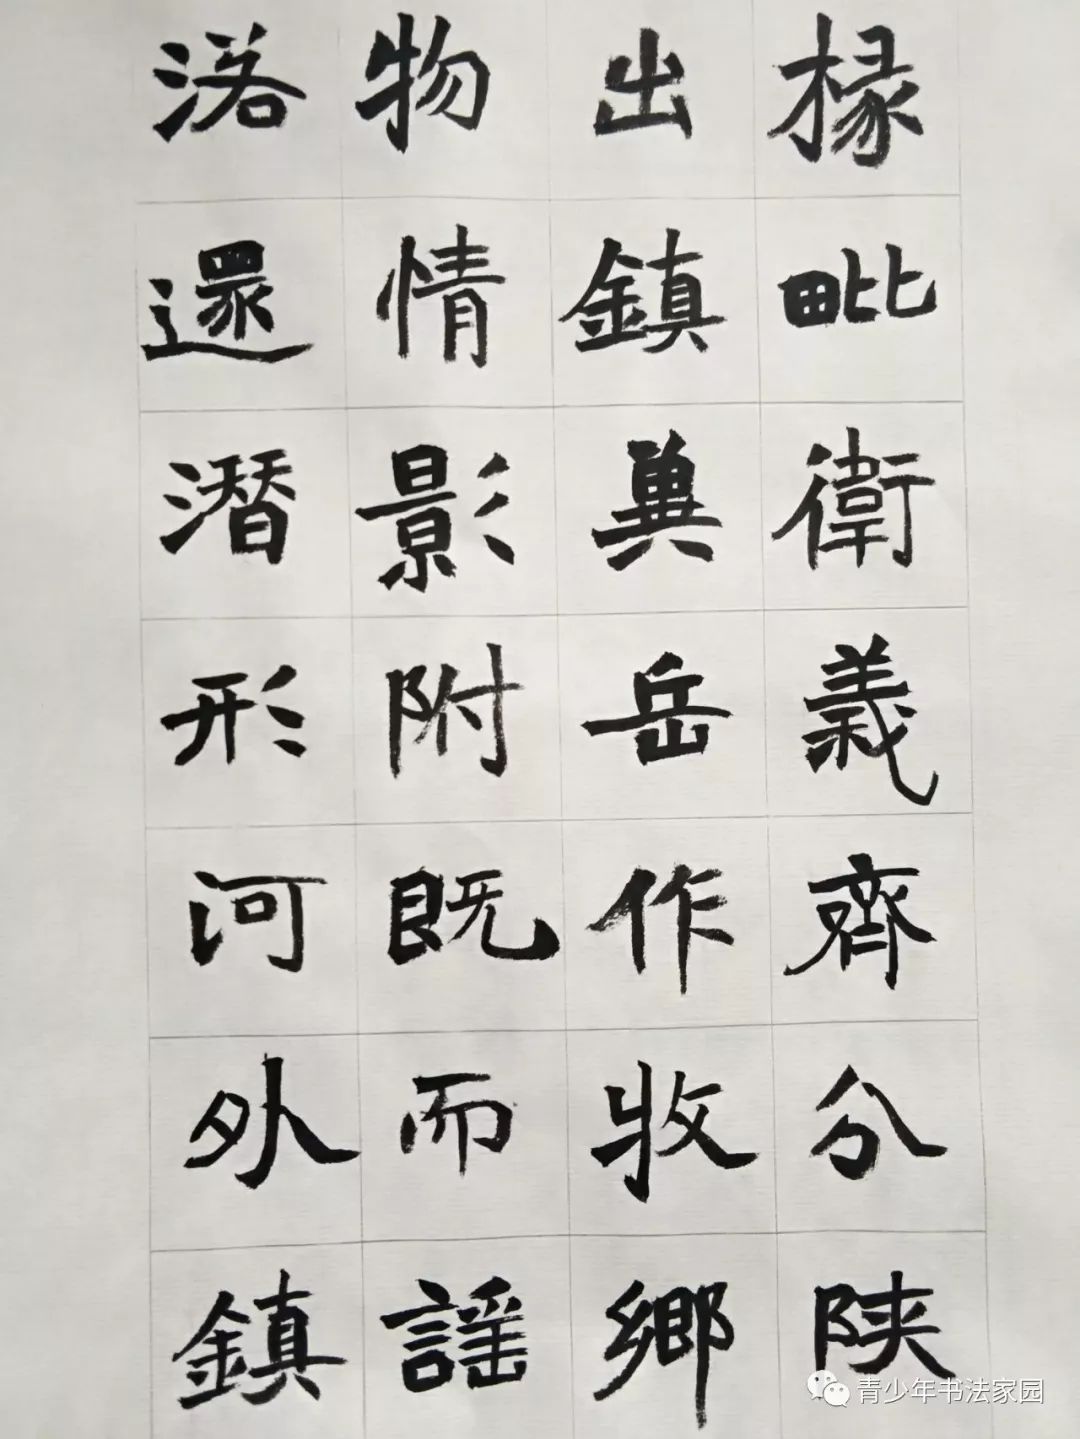 椽毗衛義齊分陕
出鎮冀岳作牧鄉
物情影附既而謡
洛還潜形河外鎮
青少年书法家园